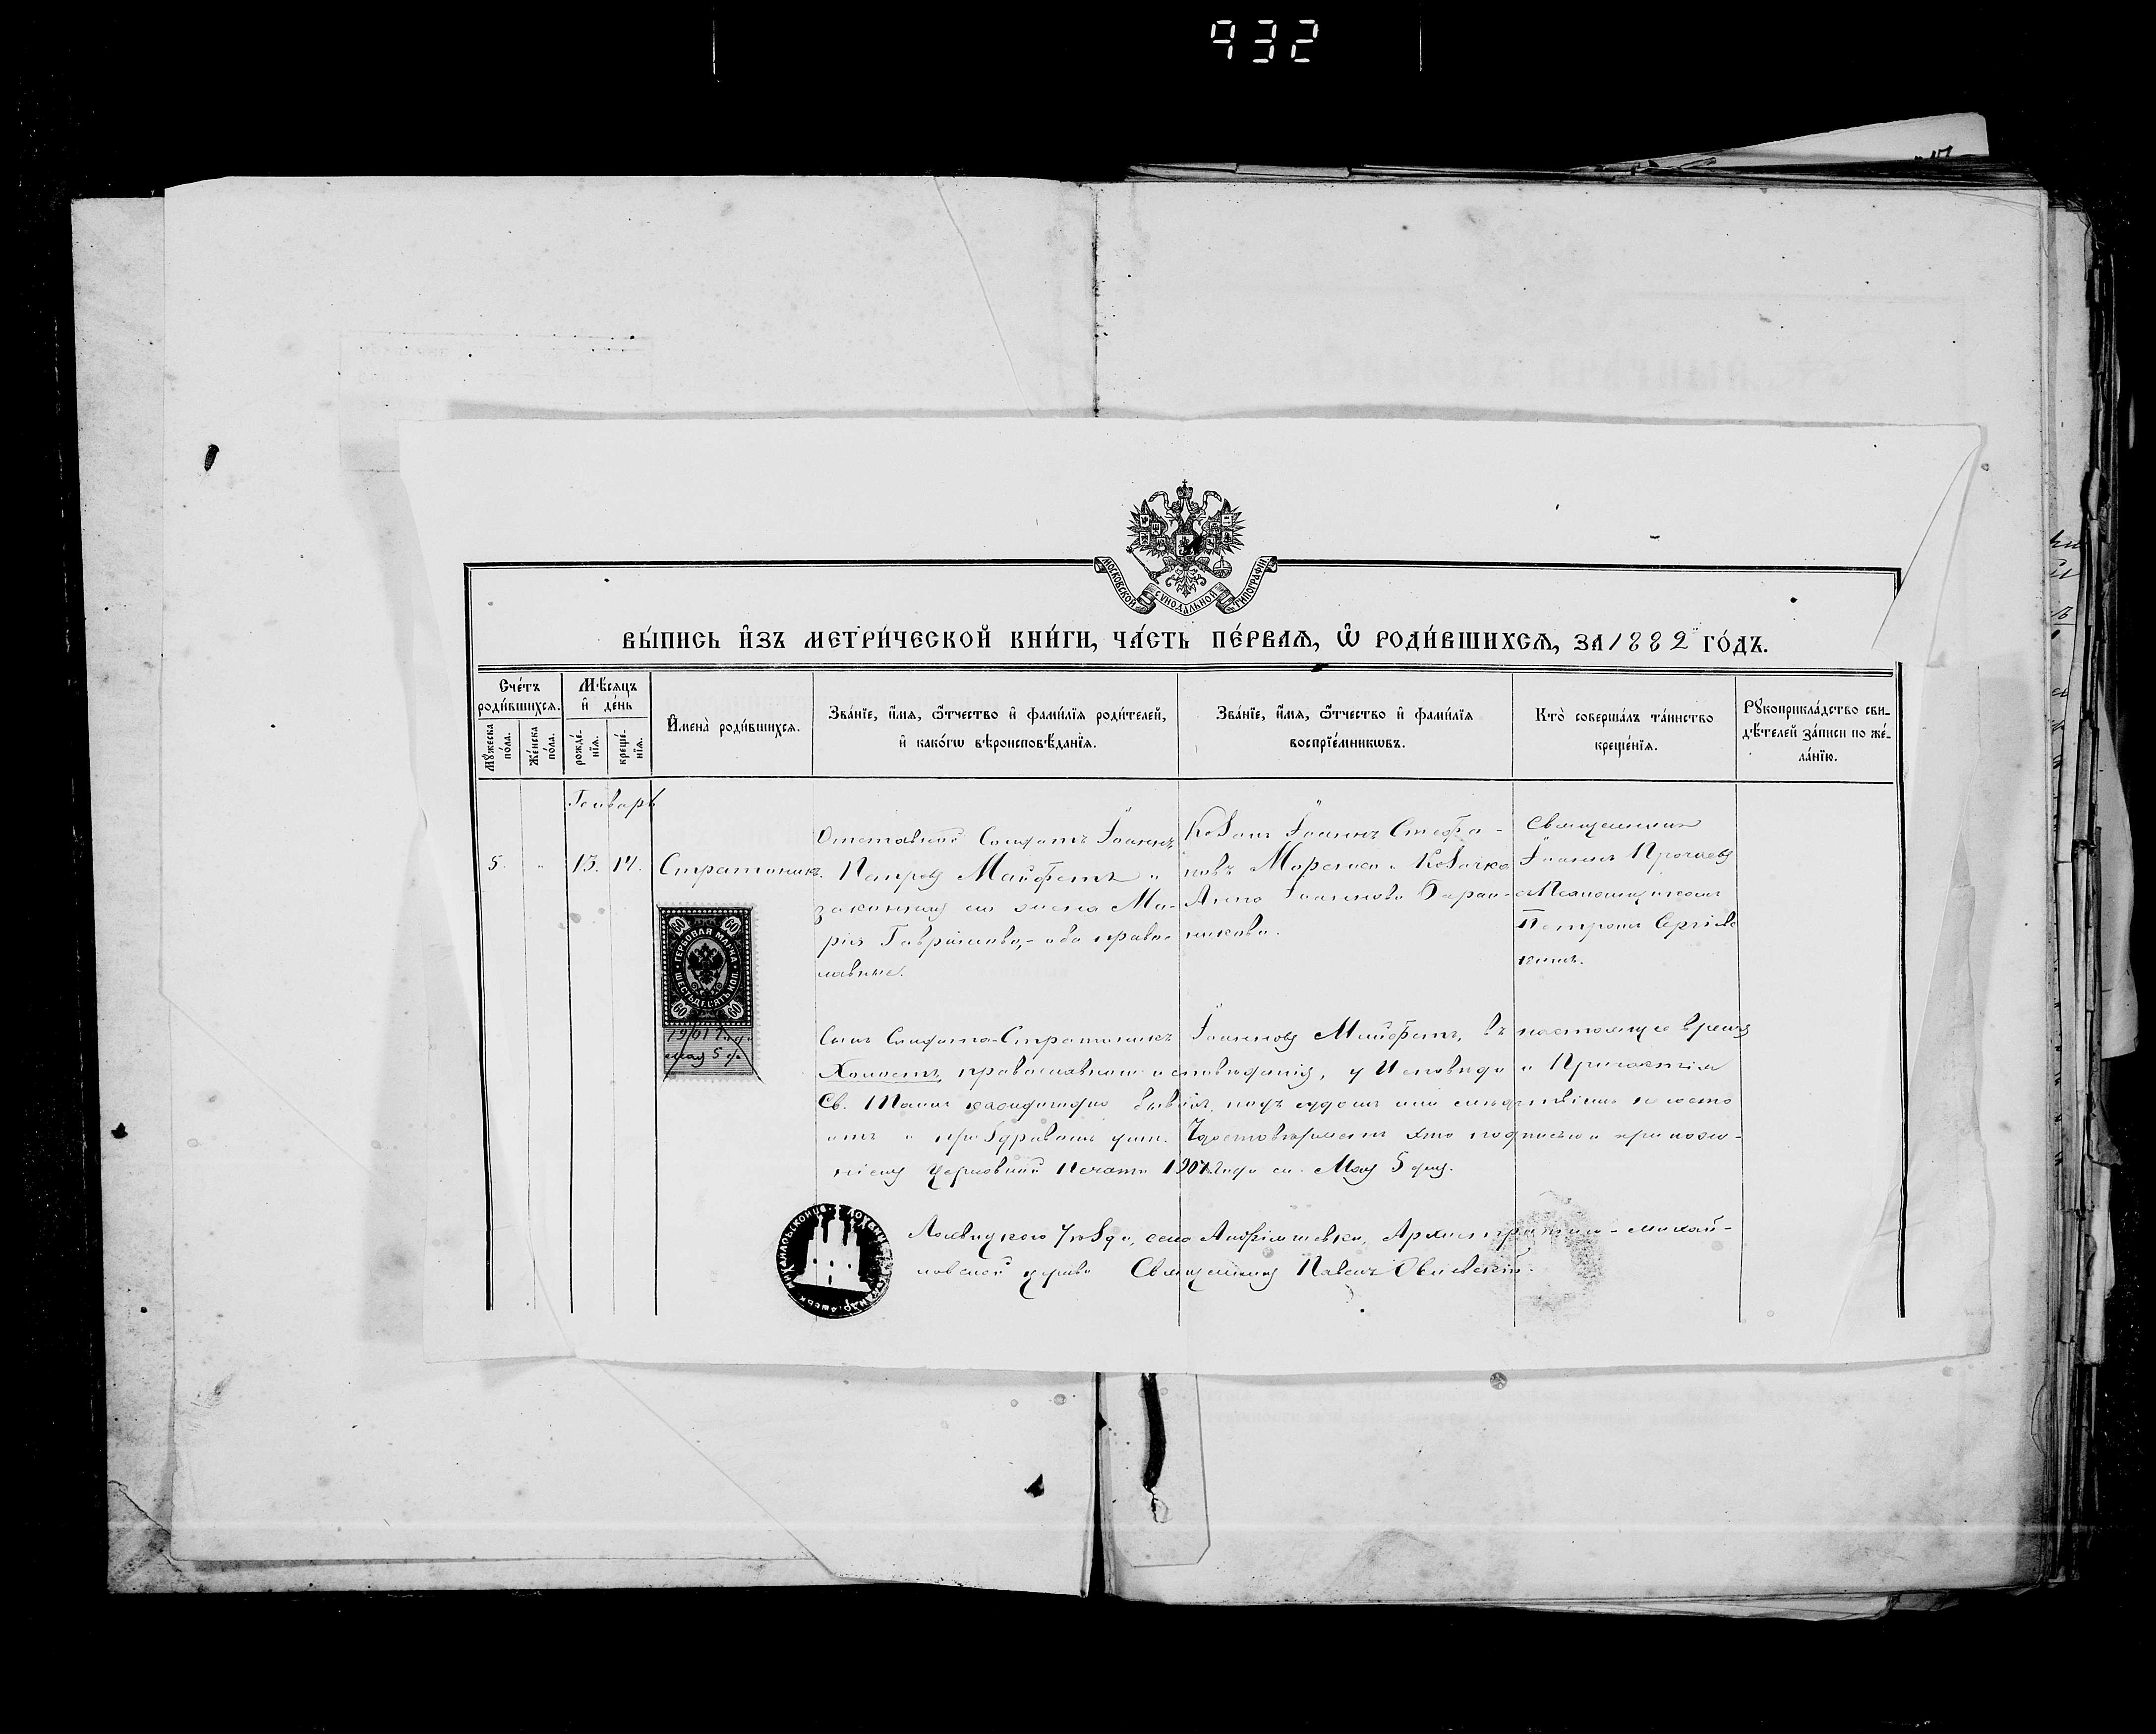 932
МОСКОВСКОЙ СѴНОДАЛЬНОЙ ТИПОГРАФІИ
ВЫ́ПИСЬ И҆ЗЪ МЕТРИ́ЧЕСКОЙ КНИ́ГИ, ЧА́СТЬ ПЕ́РВАѦ, Ѡ҆ РОДИ́ВШИХСѦ, ЗА 1882 ГО́ДЪ.
Сче́тъ роди́вшихсѧ.
Мꙋ́жеска по́ла.
Же́нска по́ла.
Мѣ́сяцъ и҆ де́нь
рожде́нїѧ.
креще́нїѧ.
И҆мена̀ роди́вшихсѧ.
Зва́нїе, и҆́мѧ, ѻ҆́тчество и҆ фами́лїѧ роди́телей,
и҆ како́гѡ вѣроисповѣ́данїѧ.
Зва́нїе, и҆́мѧ, ѻ҆́тчество и҆ фами́лїѧ
воспрїе́мникѡвъ.
Кто̀ соверша́лъ та́инство
креще́нїѧ.
Рꙋкоприкла́дство сви-
дѣ́телей за́писи по же-
ла́нїю.
Генварь
5. " 13. 14. Стратоникъ.
Отставной Солдатъ Іоаннъ
Петровъ Майфетъ и
законная его жена Ма-
рія Гавріилова,- оба право-
славные.
Козакъ Іоаннъ Стефа-
новъ и Козачка
Анна Іоаннова Баран-
никова.
Священникъ
Іоаннъ
съ Псаломщикомъ
Петромъ
ГЕРБОВАЯ МАРКА
ШЕСТЬДЕСЯТЪ КОП.
60 60 60 60
1901 года
мая 5 дня
Сынъ Солдата-Стратоникъ Іоанновъ Майфетъ, въ настоящее время
Холостъ, православнаго исповѣданія, у Исповѣди и Причастія
Св. Таинъ ежегодно бывалъ, подъ судомъ или слѣдствіемъ не состо
итъ и Удостовѣряемъ это подписью и приложе-
ніемъ Церковной Печати 1901 года м. Мая 5 дня.
Лохвицкого Уѣзда, села Архистратиго-Михай-
ловской церкви Священникъ Павелъ